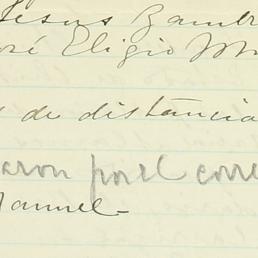 Jesus Zamb
José Eligio M
de distancia
aron por el corre
Manuel-